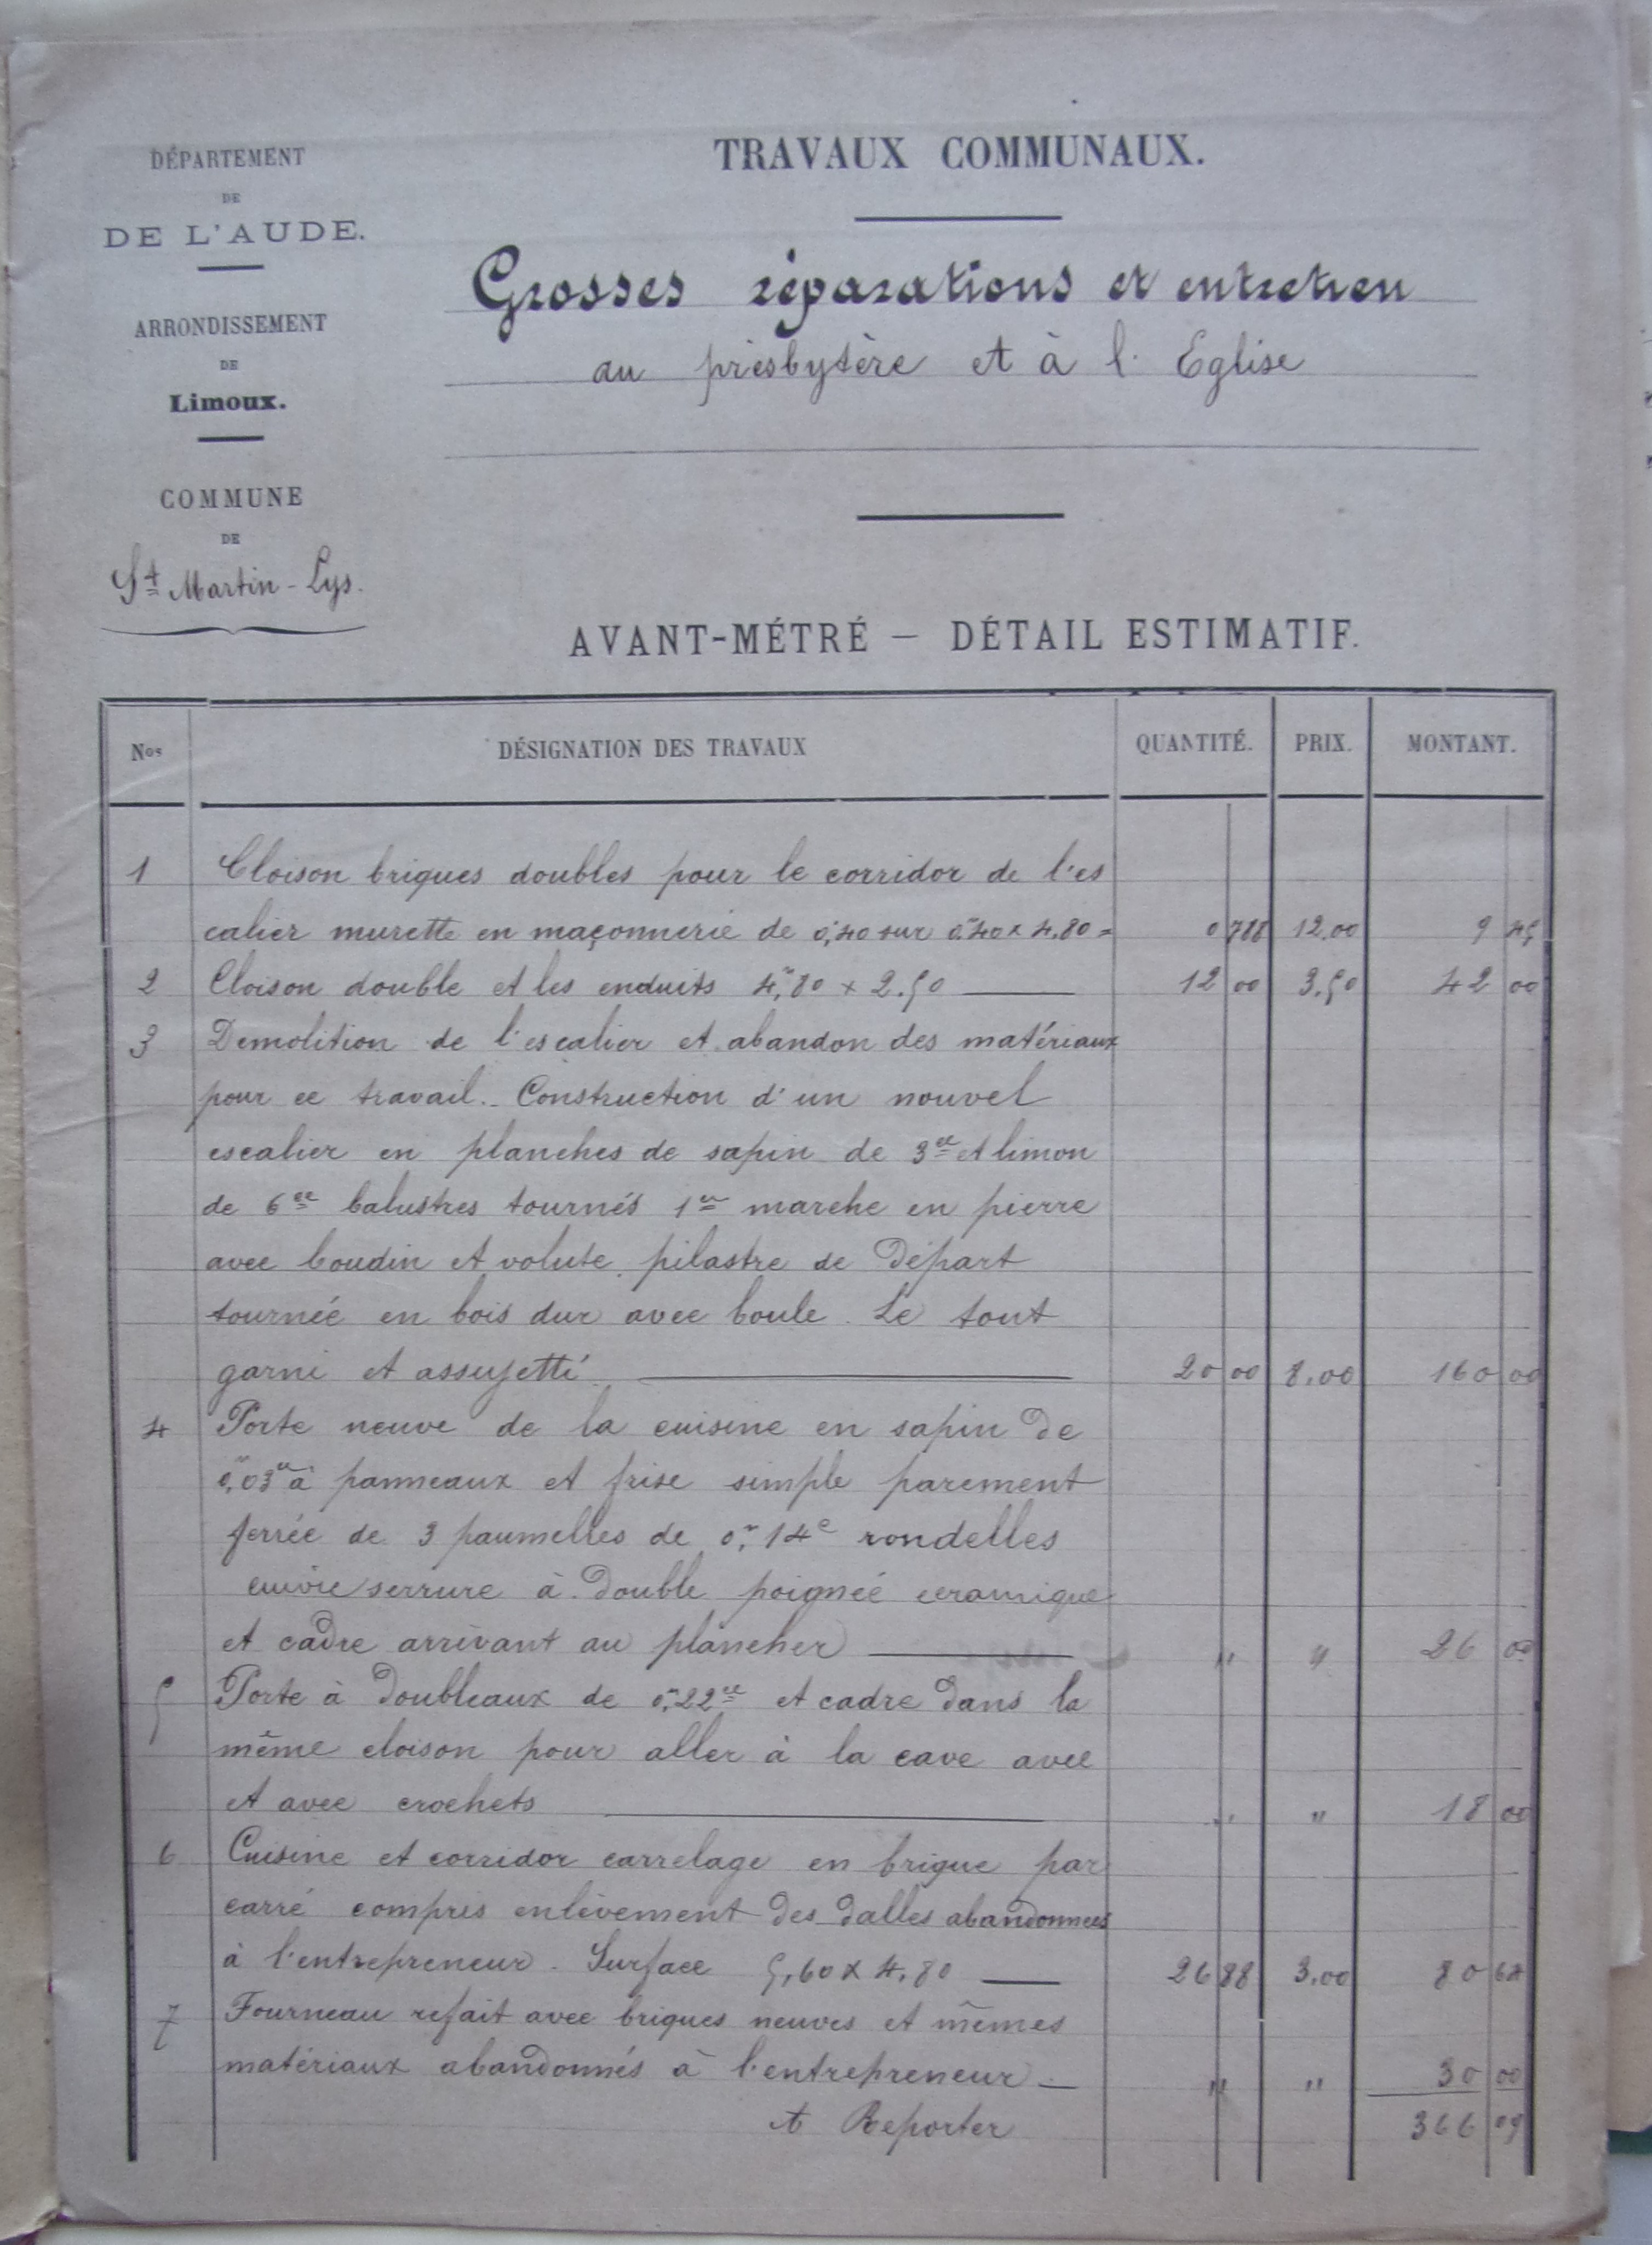 DÉPARTEMENT
DE
DE L'AUDE.
ARRONDISSEMENT
DE
Limoux.
COMMUNE
DE
St Martin-Lys.
TRAVAUX COMMUNAUX.
Grosses réparations et entretien
au presbytère et à l'Eglise
AVANT-MÉTRÉ — DÉTAIL ESTIMATIF.
Nos DÉSIGNATION DES TRAVAUX QUANTITÉ. PRIX. MONTANT.
1 Cloison briques doubles pour le corridor de l'es
calier murette en maçonnerie de 0,40 sur 0m40 x 4,80 = 0 788 12.00 9 45
2 Cloison double et les enduits 4m,80 x 2.50 12 00 3.50 42 00
3 Demolition de l'escalier et abandon des matériaux
pour ce travail. - Construction d'un nouvel
escalier en planches de sapin de 3ce et limon
de 6ce balustres tournés 1er marche en pierre
avec boudin et volute. pilastre de Départ
tournée en bois dur avec boule. Le tout
garni et assujetti 20 00 8.00 160 00
4 Porte neuve de la cuisine en sapin de
0m,03ce à panneaux et frise simple parement
ferrée de 3 paumelles de 0m,14c rondelles
cuivre serrure à double poignée ceramique
et cadre arrivant au plancher " " 26 00
5 Porte à doubleaux de 0m,22ce et cadre dans la
même cloison pour aller à la cave avec
et avec crochets " " 18 00
6 Cuisine et corridor carrelage en brique par
carré compris enlèvement des dalles abandonnees
à l'entrepreneur. Surface 5,60 x 4,80 26 88 3.00 80 64
7 Fourneau refait avec briques neuves et mêmes
matériaux abandonnés à l'entrepreneur - " " 30 00
A Reporter 366 09